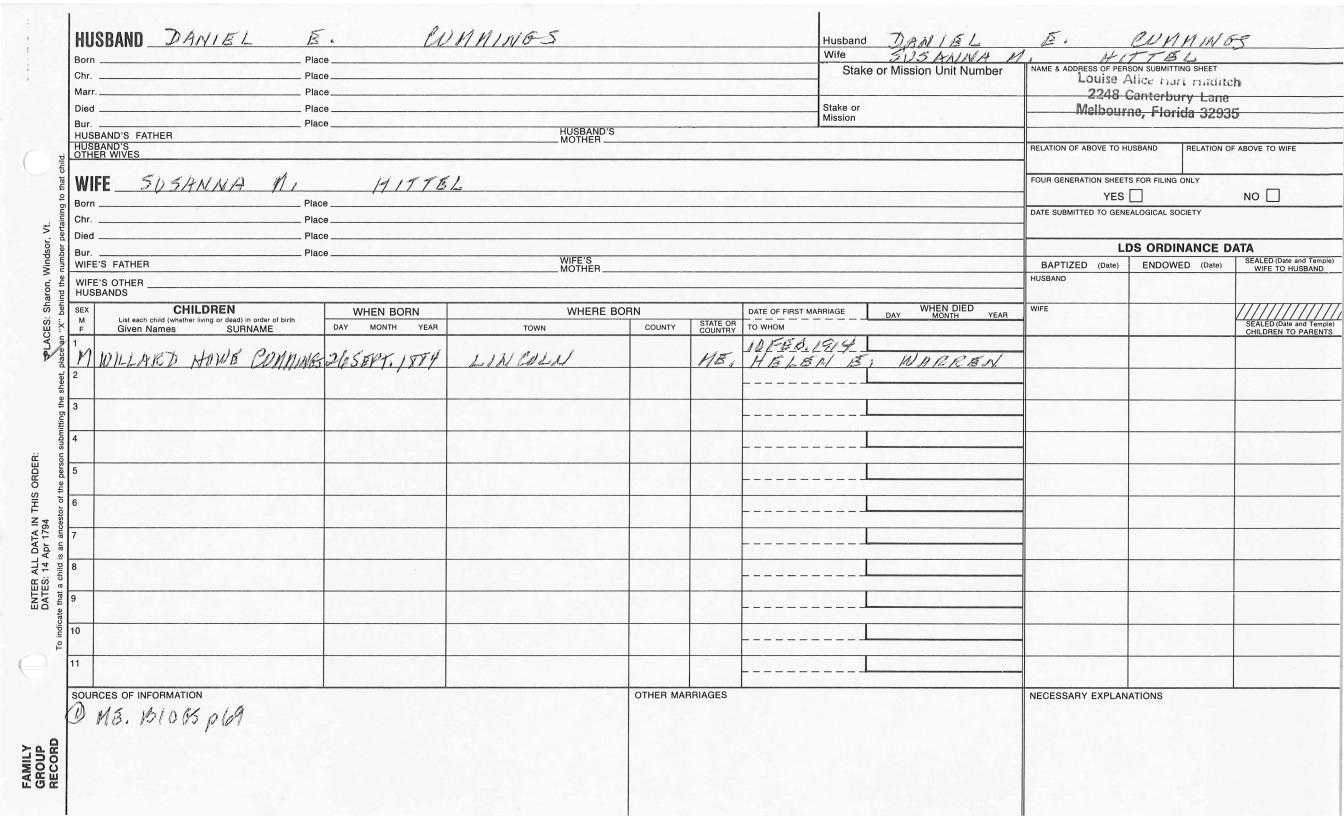 HUSBAND DANIEL E. CUMMINGS
Born Place
Chr. Place
Marr. Place
Died Place
Bur. Place
HUSBAND'S FATHER HUSBAND'S MOTHER
HUSBAND'S OTHER WIVES
Husband DANIEL E. CUMMINGS
Wife SUSANNA M. HITTEL
Stake or Mission Unit Number
Stake or Mission
NAME & ADDRESS OF PERSON SUBMITTING SHEET
Louise Alice Hart
2248 Canterbury Lane
Melbourne, Florida 32935
RELATION OF ABOVE TO HUSBAND RELATION OF ABOVE TO WIFE
FOUR GENERATION SHEETS FOR FILING ONLY
YES NO
DATE SUBMITTED TO GENEALOGICAL SOCIETY
WIFE SUSANNA M. HITTEL
Born Place
Chr. Place
Died Place
Bur. Place
WIFE'S FATHER WIFE'S MOTHER
WIFE'S OTHER HUSBANDS
LDS ORDINANCE DATA
BAPTIZED (Date) ENDOWED (Date) SEALED (Date and Temple) WIFE TO HUSBAND
HUSBAND
WIFE
SEALED (Date and Temple) CHILDREN TO PARENTS
SEX M F
CHILDREN
List each child (whether living or dead) in order of birth
Given Names SURNAME
WHEN BORN
DAY MONTH YEAR
WHERE BORN
TOWN COUNTY STATE OR COUNTRY
DATE OF FIRST MARRIAGE
TO WHOM
WHEN DIED
DAY MONTH YEAR
1 10 FEB. 1914
M WILLARD HOWE CUMMINGS 26 SEPT. 1884 LINCOLN ME. HELEN E. WARREN
2
3
4
5
6
7
8
9
10
11
SOURCES OF INFORMATION
1 ME. BIOGS p69
OTHER MARRIAGES
NECESSARY EXPLANATIONS
FAMILY GROUP RECORD
ENTER ALL DATA IN THIS ORDER:
DATES: 14 Apr 1794
PLACES: Sharon, Windsor, Vt.
To indicate that a child is an ancestor of the person submitting the sheet, place an "X" behind the number pertaining to that child.